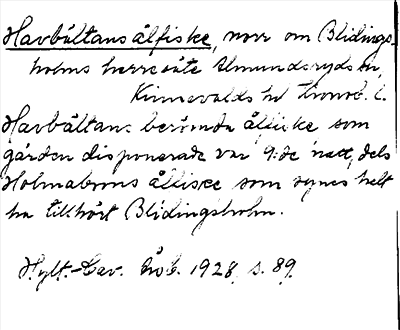 Havbältans ålfiske, norr om Blidings-
holms herresäte Almundsryds sn,
Kinnevalds hd Kronob. l.
Havbältans berömda ålfiske som
gården disponerade var 9:de natt, dels
Holmabrons ålfiske som synes helt
ha tillhört Blidingsholm.
Hylt.-Cav. Åb. 1928, s. 89.